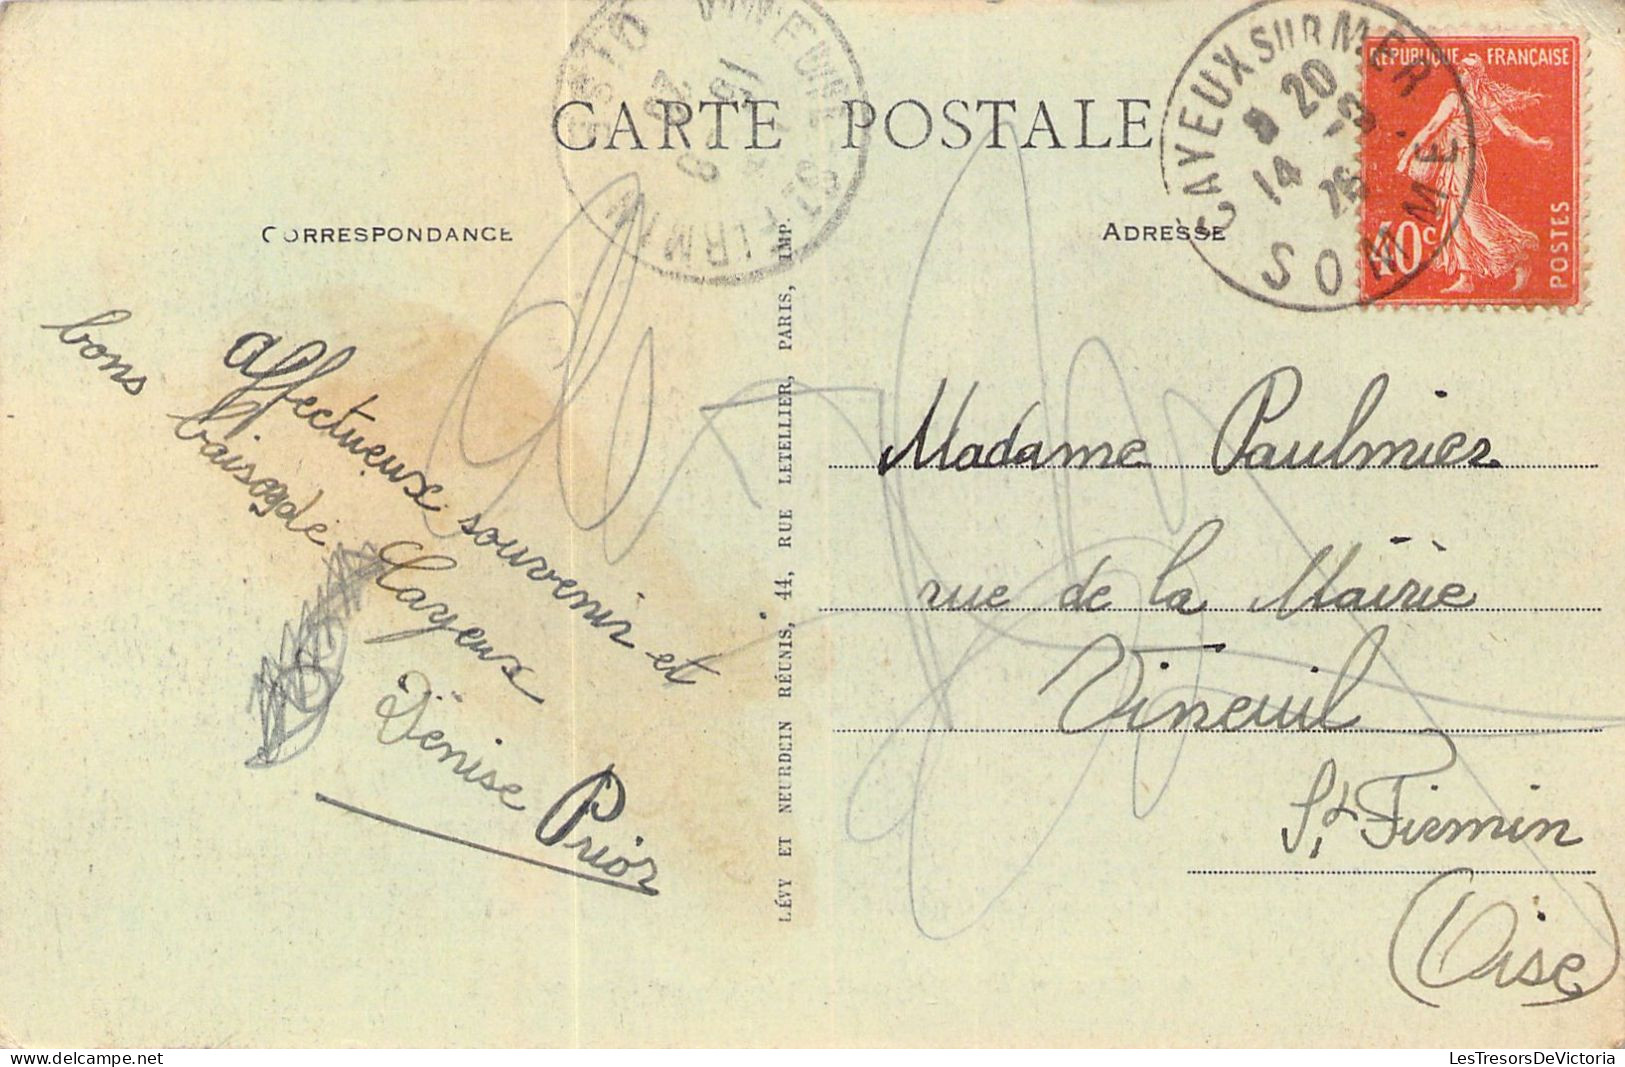 CARTE POSTALE
CORRESPONDANCE
ADRESSE
REPUBLIQUE FRANÇAISE
40c
POSTES
CAYEUX SUR MER
8 20
14 -9
26
SOMME
VINEUIL-ST FIRMIN
OISE
15 - 9
26
affectueux souvenir et
bons baisers de Cayeux
Denise Prior
LÉVY ET NEURDEIN RÉUNIS, 44, RUE LETELLIER, PARIS, IMP.
Madame Paulmier
rue de la Mairie
Vineuil
St Firmin
(Oise)
www.delcampe.net
LesTresorsDeVictoria